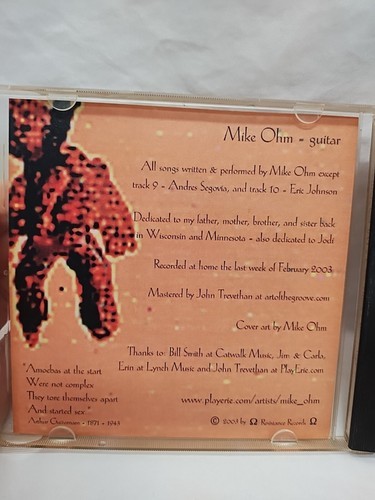 Mike Ohm - guitar
All songs written & performed by Mike Ohm except
track 9 - Andres Segovia, and track 10 - Eric Johnson
Dedicated to my father, mother, brother, and sister back
in Wisconsin and Minnesota - also dedicated to Jodi
Recorded at home the last week of February 2003
Mastered by John Trevethan at artofthegroove.com
Cover art by Mike Ohm
Thanks to: Bill Smith at Catwalk Music, Jim & Carla,
Erin at Lynch Music and John Trevethan at PlayErie.com
"Amoebas at the start
Were not complex
They tore themselves apart
And started sex."
Arthur Guiterman - 1871 - 1943
www.playerie.com/artists/mike_ohm
© 2003 by Ω Resistance Records Ω